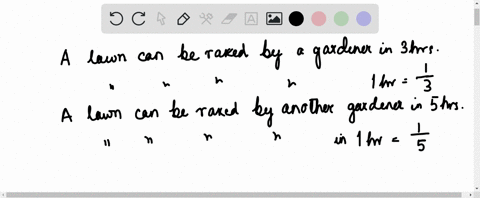 A lawn can be raked by a gardener in 3hrs.
" " " " 1 hr = 1/3
A lawn can be raked by another gardener in 5 hrs.
" " " " in 1 hr = 1/5